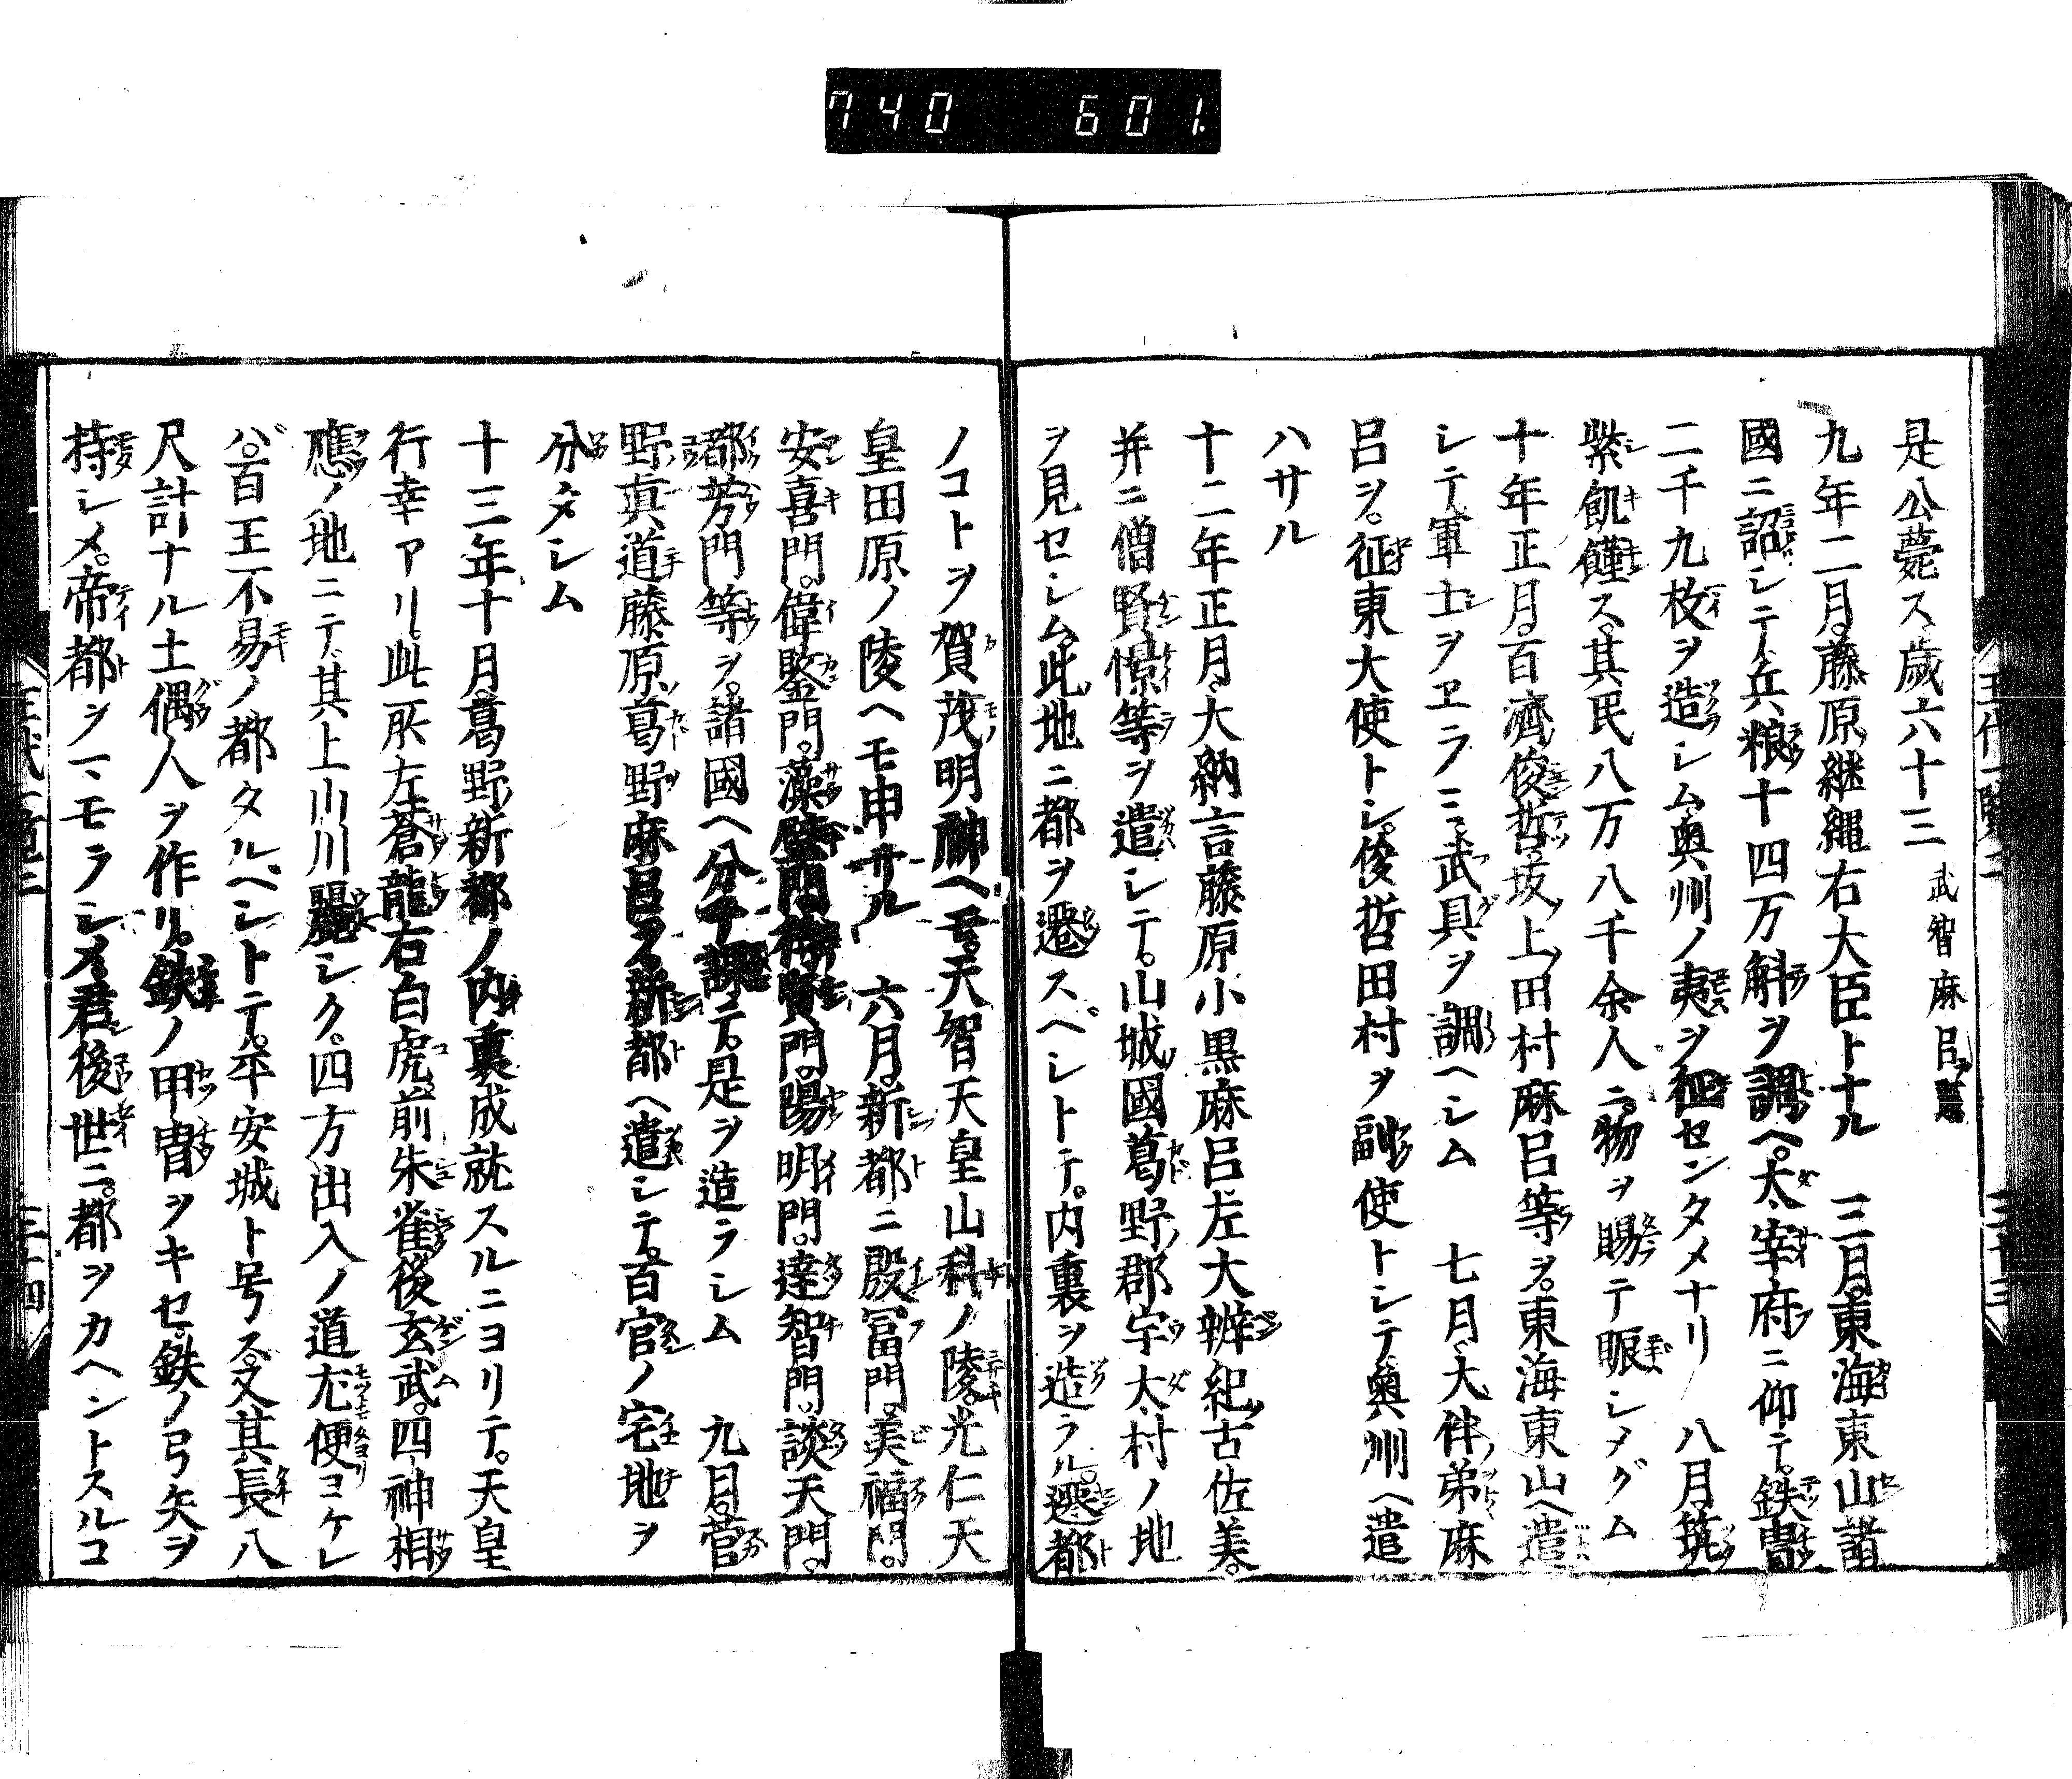 740 601.
是公薨ス歳六十三 武智麻呂
九年二月藤原継縄右大臣トナル 三月東海東山諸
國ニ詔シテ兵粮十四万斛ヲ調ヘ太宰府ニ仰テ鉄冑
二千九枚ヲ造シム奥州ノ夷ヲ征センタメナリ 八月筑
紫飢饉ス其民八万八千余人ニ物ヲ賜テ賑シメグム
十年正月百濟俊哲坂上田村麻呂等ヲ東海東山ヘ遣
シテ軍士ヲヱラミ武具ヲ調ヘシム 七月大伴弟麻
呂ヲ征東大使トシ俊哲田村ヲ副使トシテ奥州ヘ遣
ハサル
十二年正月大納言藤原小黒麻呂左大辨紀古佐美
并ニ僧賢憬等ヲ遣シテ山城國葛野郡宇太村ノ地
ヲ見セシム此地ニ都ヲ遷スベシトテ内裏ヲ造ラル遷都
ノコトヲ賀茂明神ヘモ天智天皇山科ノ陵光仁天
皇田原ノ陵ヘモ申サル 六月新都ニ殷冨門美福門
安喜門偉鑒門藻壁門待賢門陽明門達智門談天門
都芳門等ヲ諸國ヘ分チ課テ是ヲ造ラシム 九月菅
野真道藤原葛野麻呂ヲ新都ヘ遣シテ百官ノ宅地ヲ
分タシム
十三年十月葛野新都ノ内裏成就スルニヨリテ天皇
行幸アリ此所左蒼龍右白虎前朱雀後玄武四神相
應ノ地ニテ其上山川麗シク四方出入ノ道尤便ヨケレ
バ百王不易ノ都タルベシトテ平安城ト号ス又其長八
尺計ナル土偶人ヲ作リ鉄ノ甲冑ヲキセ鉄ノ弓矢ヲ
持シメ帝都ヲマモラシメ君後世ニ都ヲカヘントスルコ